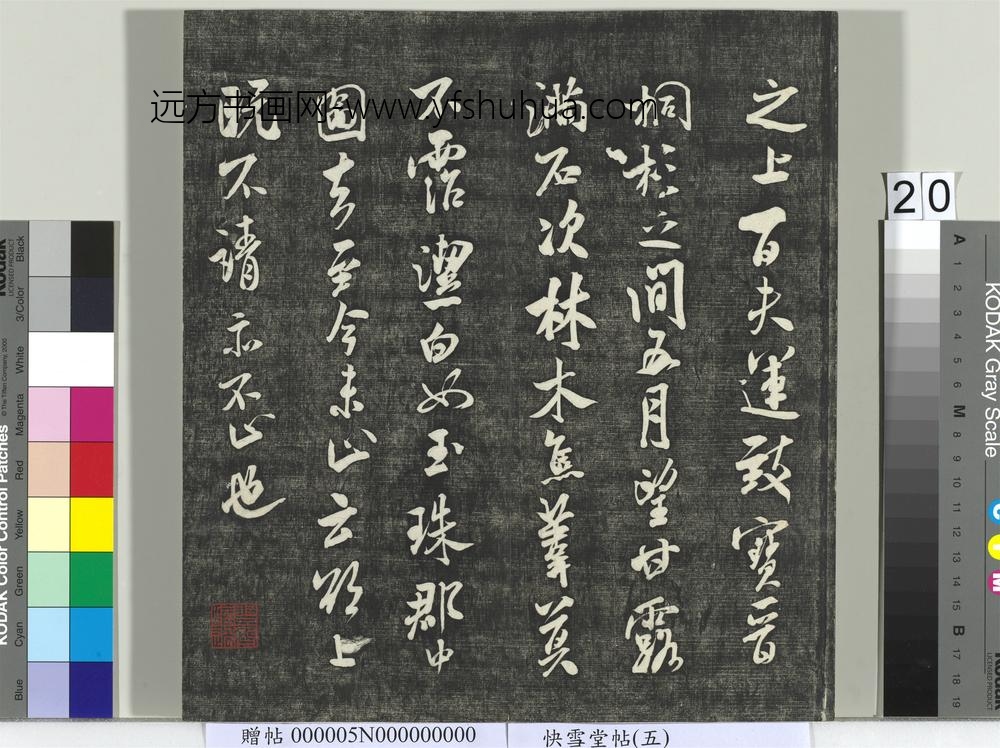 之上百夫運致寶晉
桐杉之間五月望甘露
滿石次林木焦葦莫
不霑潔白如玉珠郡中
圖去至今未止云欲上
既不請亦不止也
远方书画网-www.yfshuhua.com
20
KODAK Gray Scale
A 1 2 3 4 5 6 M 8 9 10 11 12 13 14 15 B 17 18 19
KODAK Color Control Patches
Blue Cyan Green Yellow Red Magenta White 3/Color Black
贈帖 000005N000000000
快雪堂帖(五)